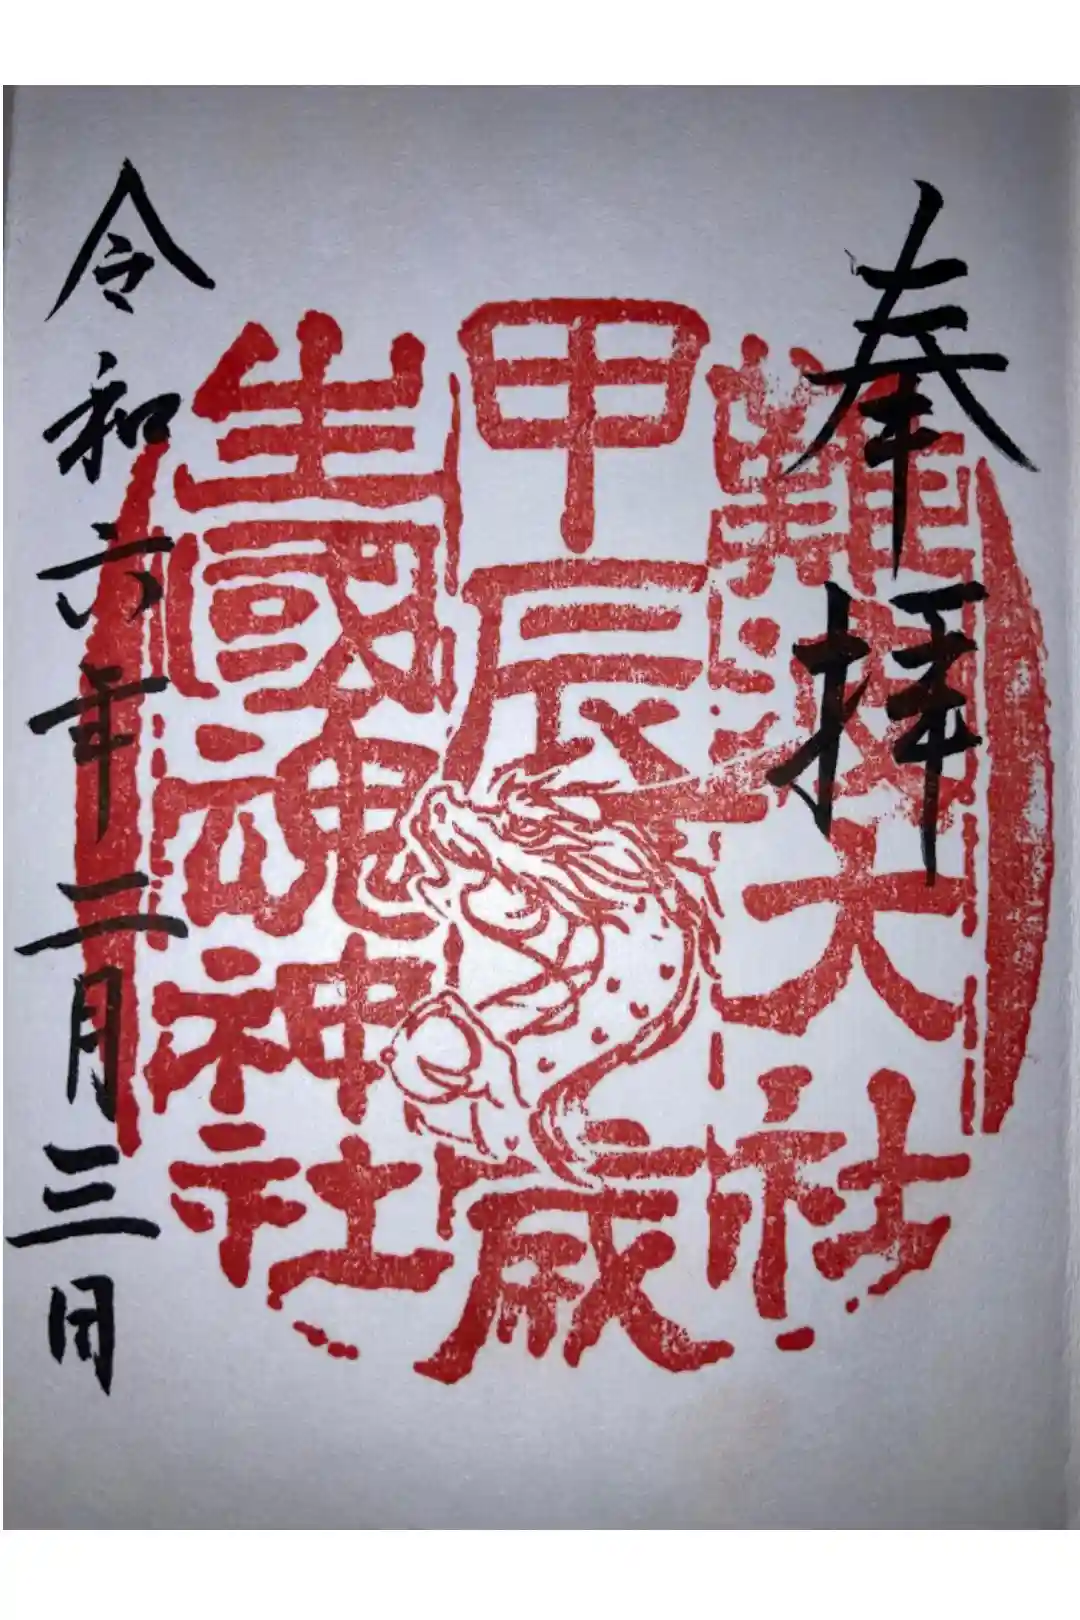 奉拝
難波大社
甲辰歳
生國魂神社
令和六年二月三日